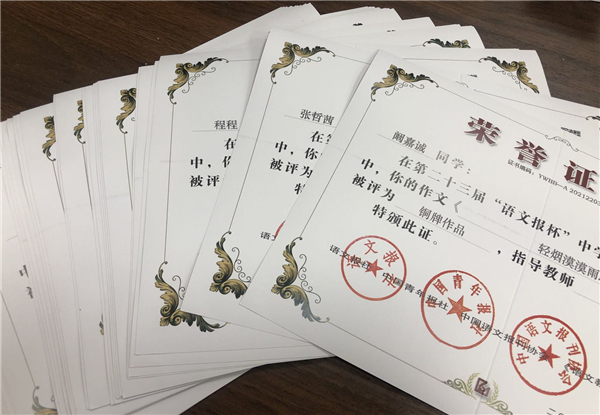 荣誉证
证书编码：YWHD—A 20212203
阚嘉诚 同学：
在第二十三届“语文报杯”中学
中，你的作文《 轻烟漠漠雨
被评为 铜牌作品 ，指导教师
特颁此证。
语文报社 中国青年报社 中国语文报刊协会
语文报
中国青年报
中国语文报刊协会
张哲茜
在第
中，你
被评
特
程程
在
中，你
被评为